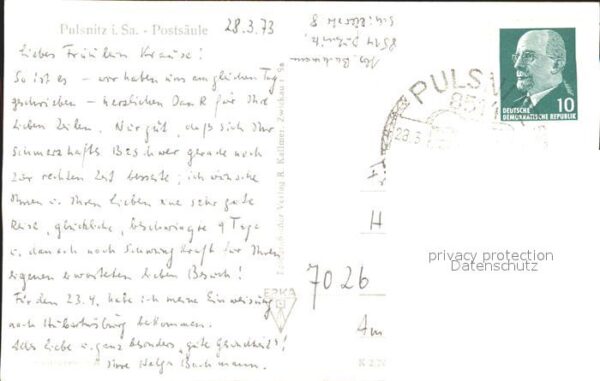 Pulsnitz i. Sa. - Postsäule
28.3.73
Liebes Fräulein Krause!
So ist es – wir haben uns am gleichen Tag
geschrieben – herzlichen Dank für Ihre
lieben Zeilen. Nur gut, daß sich Ihr
schmerzhafte Beschwer gerade noch
zur rechten Zeit besserte; ich wünsche
Ihnen u. Ihren Lieben eine sehr gute
Reise, glückliche, beschwingte 9 Tage
u. danach noch Schwungkraft für Ihren
eigenen erwarteten lieben Besuch!
Für den 23.4. habe ich meine Einweisung
nach Hubertusburg bekommen.
Alles Liebe u. ganz besonders "gute Gesundheit"!
Ihre Helga Bachmann.
8514 Pulsnitz
Verlag R. Kallmer, Zwickau i. Sa
ERKA
PULSNITZ
8514
28.3
DEUTSCHE
DEMOKRATISCHE REPUBLIK
10
H
7026
Am
K 2/7
privacy protection
Datenschutz